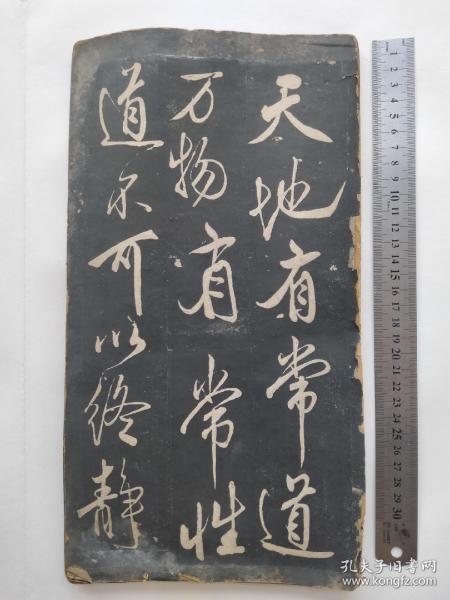 天地有常道
万物有常性
道不可以终静
1 2 3 4 5 6 7 8 9 10 11 12 13 14 15 16 17 18 19 20 21 22 23 24 25 26 27 28 29 30
孔夫子旧书网
www.kongfz.com